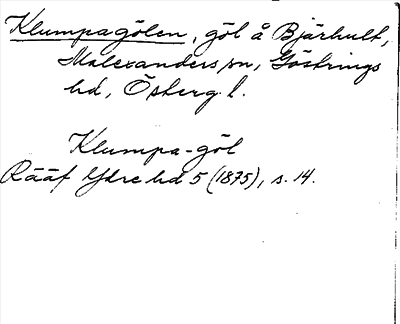 Klumpagölen, göl å Bjärhult,
Malexanders sn, Göstrings
hd, Österg. l.
Klumpa-göl
Rääf Ydre hd 5 (1875), s. 14.